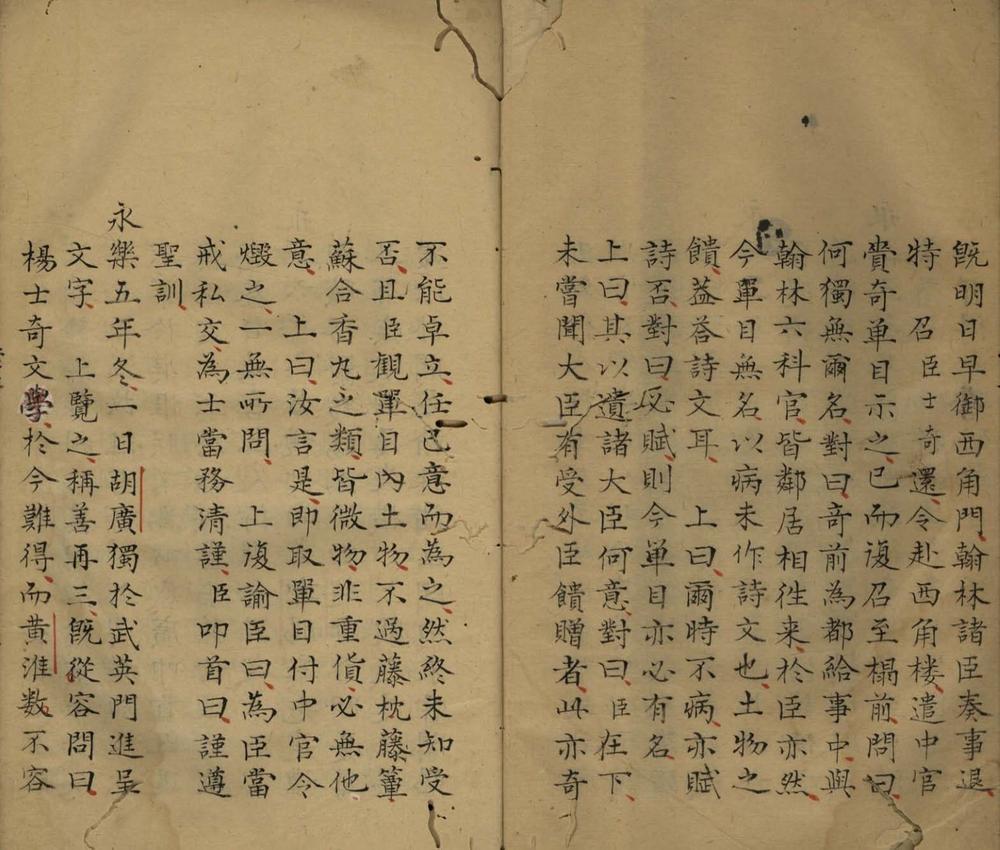 既明日早御西角門翰林諸臣奏事退
特　召臣士奇還令赴西角楼遣中官
賫奇单目示之已而復召至榻前問曰
何獨無爾名對曰奇前為都給事中與
翰林六科官皆鄰居相徃来於臣亦然
今單目無名以病未作詩文也土物之
饋葢荅詩文耳　上曰爾時不病亦賦
詩否對曰必賦則今单目亦必有名
上曰其以遺諸大臣何意對曰臣在下
未嘗聞大臣有受外臣饋贈者此亦奇
不能卓立任己意而為之然終未知受
否且臣觀單目內土物不過藤枕藤簟
蘇合香丸之類皆微物非重貨必無他
意　上曰汝言是即取單目付中官令
燬之一無所問　上復諭臣曰為臣當
戒私交為士當務清謹臣叩首曰謹遵
聖訓
永樂五年冬一日胡廣獨於武英門進呈
文字　上覽之稱善再三既從容問曰
楊士奇文學於今難得而黄淮数不容